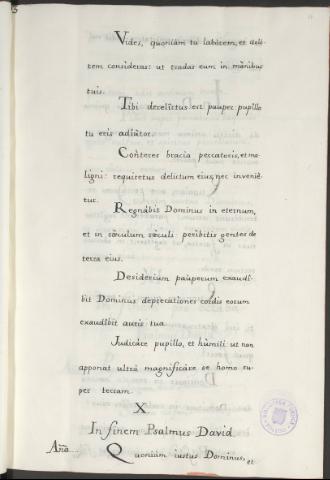 Vides, quoniam tu laborem, et dolo
rem consideras: ut tradas eum in mánibus
tuis.
Tibi derelictus est pauper pupillo
tu eris adiútor.
Cónteres bracia peccatoris, et ma
ligni: requiretus delictum eius, nec invenié
tur.
Regnábis Dominus in eternum,
et in sǽculum sǽculi peribitis gentes de
terra eius.
Desiderium páuperum exaudí
bit Dominus deprecationes cordis eorum
exaudíbit auris tua.
Judicáre pupillo, et húmili ut non
apponat ultrá magnificáre se homo su
per terram.
X
In finem Psalmus David
Quoniam iustus Dominus, et